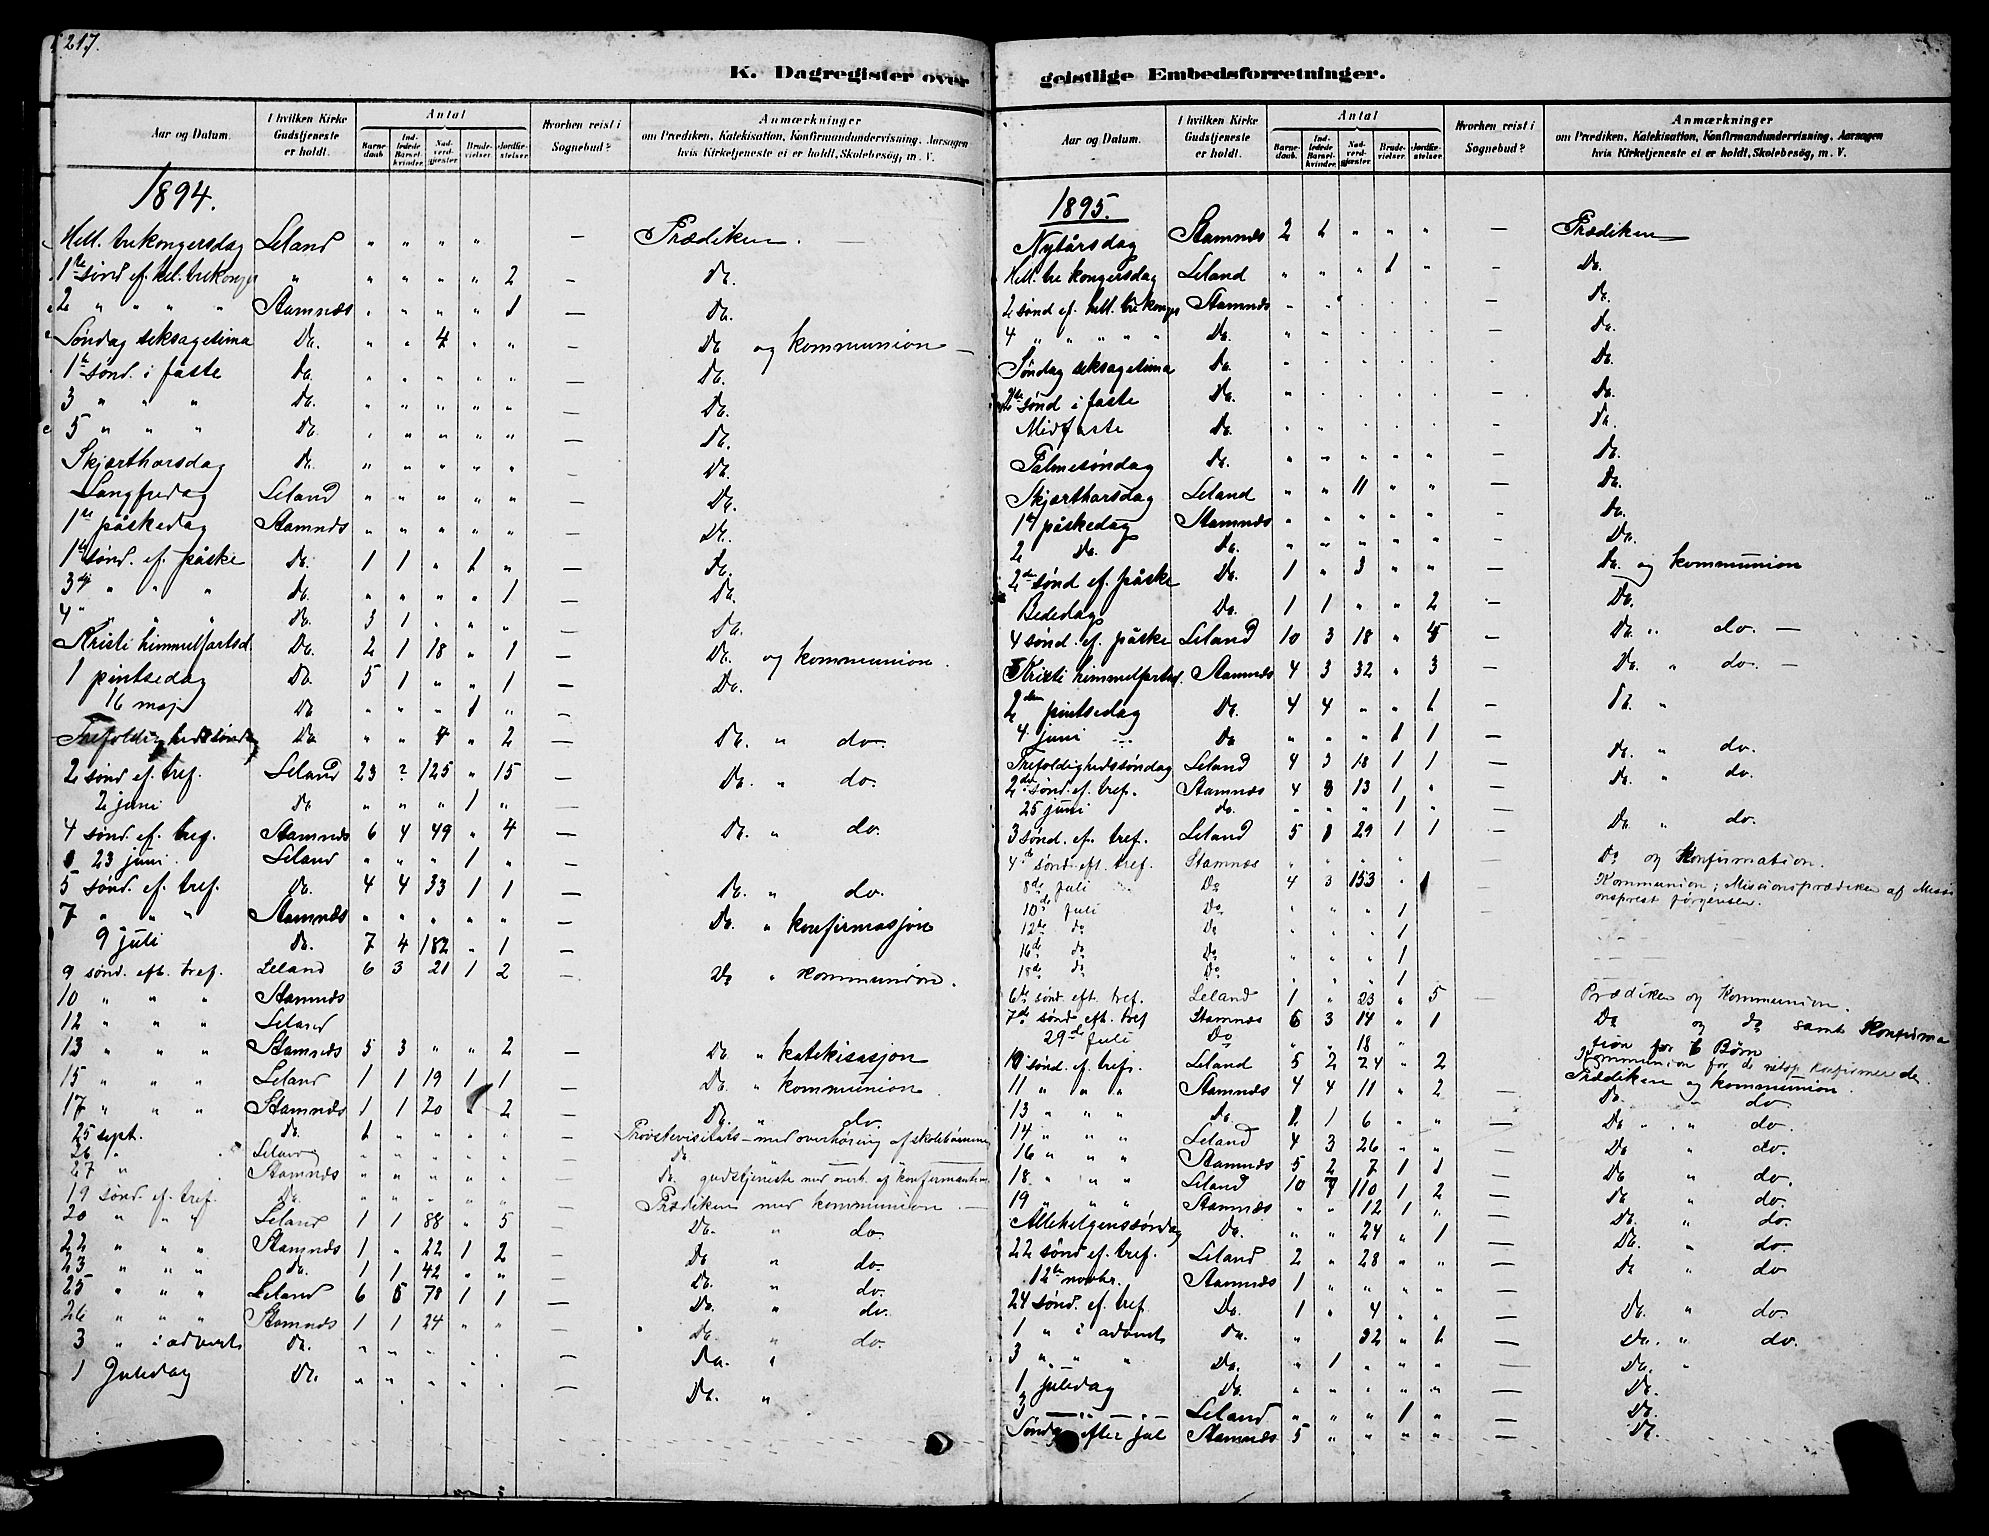 217.
K. Dagregister over
Aar og Datum.
I hvilken Kirke Gudstjeneste er holdt.
Antal
Barnedaab.
Indledede Barselkvinder.
Nadverdgjester.
Brudevielser.
Jordfæstelser.
Hvorhen reist i Sognebud?
Anmærkninger
om Prædiken, Katekisation, Konfirmandundervisning, Aarsagen
hvis Kirketjeneste ei er holdt, Skolebesøg, m. V.
1894.
Hell. trekongersdag Leland " " " " — Prædiken. —
1ste sønd ef. hel. trekonger " " " " " 2 — Do.
2 " " " " Stamnæs " " " " 1 — Do.
Søndag seksagesima Do. " " 4 " " — Do og kommunion —
1ste sønd. i faste Do. " " " " " — Do.
3 " " " Do. " " " " " — Do.
5 " " " Do. " " " " " — Do.
Skjærthorsdag Do. " " " " " — Do.
Langfredag Leland " " " " " — Do.
1ste påskedag Stamnæs " " " " " — Do.
1ste sønd. ef. påske Do. 1 1 " 1 " — Do.
3dje " " " Do. " " " " 1 — Do.
4 " " " Do. 3 1 " " " — Do.
Kristi himmelfartsd. Do. 2 1 18 " 1 — Do og kommunion.
1 pintsedag Do. 5 1 " " 1 — Do.
16 maj Do " " " 1 " —
Trefoldighedssøndag Do. " " 4 " 2 — Do. " do.
2 sønd ef. tref. Leland 23 ? 125 " 15 — Do. " do.
2 juni Do " " " 1 " —
4 sønd. ef. tref. Stamnæs 6 4 49 " 4 — Do. " do.
23 juni. Leland " " " 1 " —
5 sønd. ef. tref. Do. 4 4 33 1 1 — Do. " do.
7 " " " Stamnæs " " " " " — Do. " konfirmasjon
9 juli Do. 7 4 182 " 1 —
9 sønd. eft. tref. Leland 6 3 21 1 2 — Do " kommunion.
10 " " " Stamnæs
12 " " " Leland
13 " " " Stamnæs 5 3 " " 2 — Do " katekisasjon
15 " " " Leland 1 1 19 1 1 — Do " kommunion
17 " " " Stamnæs 1 1 20 " 2 — Do. " do.
25 sept. Do. 1 " " " " — Provstevisitats — med overhøring af skolebørnene
26 " Leland " " " " " — Do
27 " Stamnæs " " " " " — Do. gudstjeneste med overh. af konfirmanter
19 sønd. ef. tref. Do. " " " " " — Prædiken med kommunion. —
20 " " " Leland 1 1 88 " 5 — Do. " do.
22 " " " Stamnæs 1 " 22 1 2 — Do " do.
23 " " " Do. 1 1 42 " " — Do. " do.
25 " " " Leland 6 5 78 1 1 — Do. " do.
26 " " " Stamnæs 1 1 24 " " — Do. " do.
3 " i advent Do. " " " " " — Do. "
1 Juledag Do. " " " " " — Do. "
geistlige Embedsforretninger.
Aar og Datum.
I hvilken Kirke Gudstjeneste er holdt.
Antal
Barnedaab.
Indledede Barselkvinder.
Nadverdgjester.
Brudevielser.
Jordfæstelser.
Hvorhen reist i Sognebud?
Anmærkninger
om Prædiken, Katekisation, Konfirmandundervisning, Aarsagen
hvis Kirketjeneste ei er holdt, Skolebesøg, m. V.
1895.
Nytårsdag Stamnæs 2 1 " " " — Prædiken
Hell. tre kongersdag Leland " " " 1 " — Do.
2 sønd ef. hell. trekonger Stamnæs " " " " " — Do.
4 " " " " Do. " " " " " — Do.
Søndag seksagesima Do. " " " " " — Do.
2den sønd i faste Do. " " " " " — Do.
Midfaste Do. " " " " " — Do.
Palmesøndag Do. " " " " " — Do.
Skjærthorsdag Leland " " 11 " " — Do.
1ste påskedag Stamnæs " " " " " — Do.
2 Do. Do. " " " " " — Do.
2den sønd ef. påske Do. 1 " 3 " " — Do. og kommunion
Bededag Do. 1 1 " " 2 — Do.
4 sønd. ef. påske Leland 10 3 18 " 4 — Do. " do. —
Kristi himmelfartsd. Stamnæs 4 3 32 " 3 — Do. " do. —
2den pintsedag Do. 4 4 " " 1 — Do. "
4 juni Do " " " 1 1 —
Trefoldighedssøndag Leland 4 3 18 1 1 — Do. " do.
2den sønd. ef. tref. Stamnæs 4 3 13 1 " — Do. " do.
25 juni do. " " " 1 " —
3 sønd. ef. tref. Leland 5 8 29 1 1 — Do " do.
4de sønd. eft. tref. Stamnæs " " " " — Do og Konfirmation.
8de Juli Do 4 3 153 " 1 Kommunion; Missionsprædiken af Missi
onsprest Jørgensen.
10de Juli Do " " " 1
12de do Do " " " 1
16de do Do " " " 1
18de do Do " " " 1
6te sønd. eft. tref. Leland 1 " 23 " 5 — Prædiken og Kommunion.
7de sønd. eft. tref Stamnæs 6 3 14 " 1 Do og do samt Konfirma
tion for 6 Børn
29de Juli Do " " 18 " Kommunion for de netop konfirmerede
10 sønd. ef. tref. Leland 5 2 24 " 2 — Prædiken og kommunion.
11 " " " Stamnæs 4 4 11 " 2 — Do. " do.
13 " " " Do. 1 1 6 " " — Do " do.
14 " " " Leland 4 3 26 " " — Do " do.
16 " " " Stamnæs 5 2 7 1 1 — Do " do.
18 " " " Leland 10 7 110 1 2 — Do " do.
19 " " " Stamnæs " " 12 1 " — Do. " do.
Allehelgenssøndag Do. " " 24 " 1 — Do. " do.
22 sønd ef. tref. Leland 2 " 28 " " — Do " do
12te novbr. Stamnæs 1 " " " " —
24 sønd. ef. tref. Do. 1 " 4 " " — Do. " do.
1 " i advent Do. " " 32 " 1 — Do. " do.
3 " " " Do. " 1 " " " — Do. "
1 juledag Do. " " " " " — Do.
3 — " — Leland " " " 1 " — Do.
Søndag efter jul Stamnæs 5 " " " " — Do.